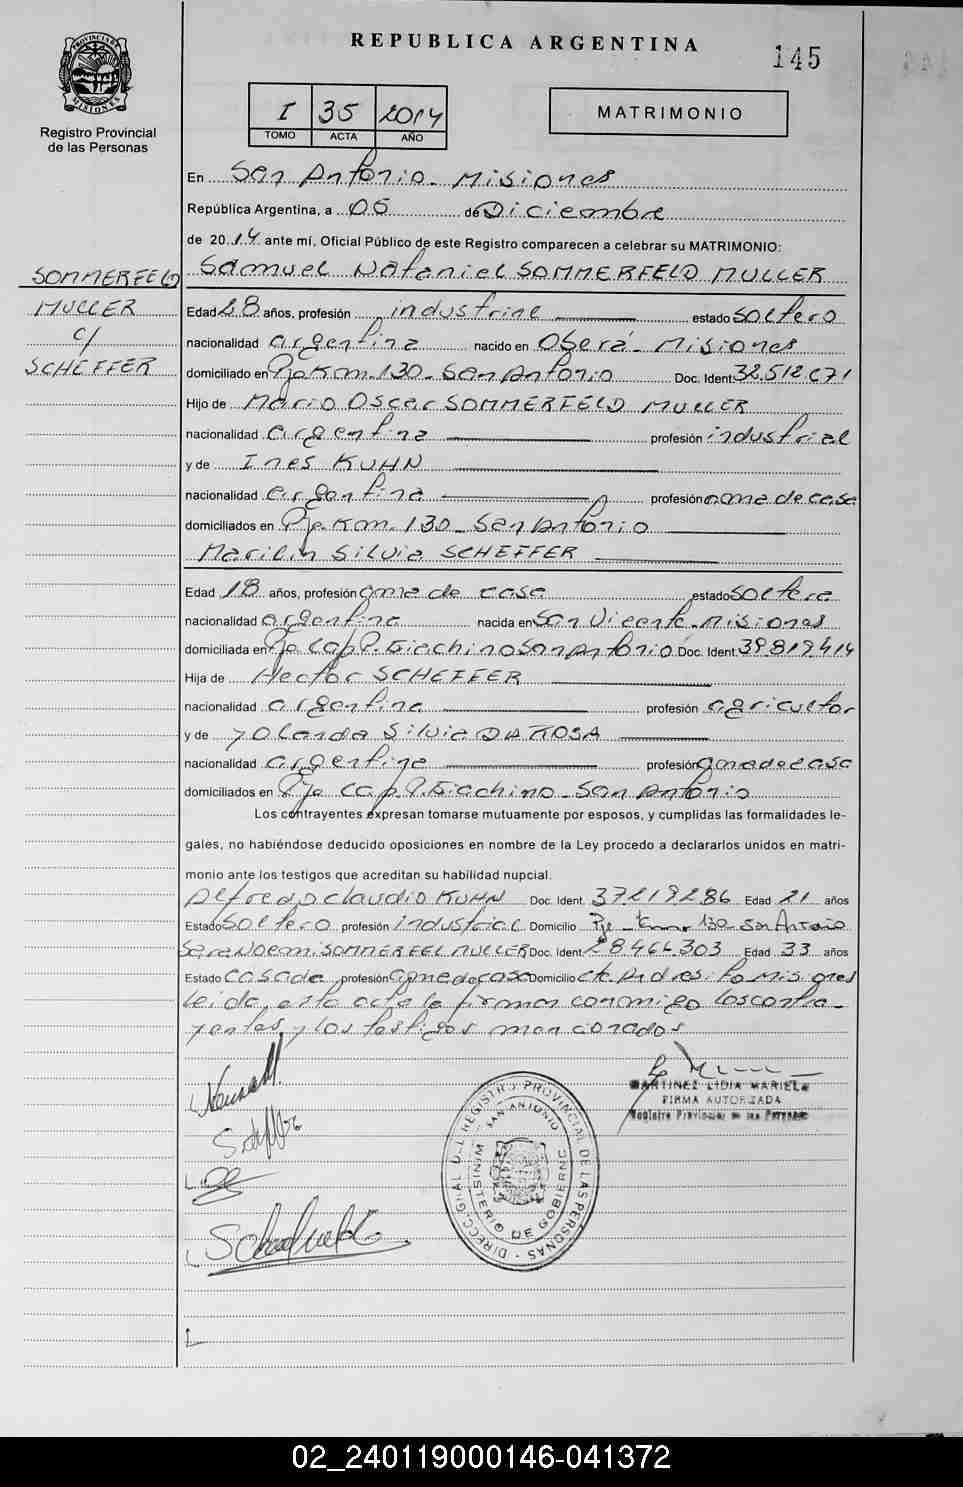 REPUBLICA ARGENTINA
145
PROVINCIA DE MISIONES
Registro Provincial
de las Personas
I 35 2014
TOMO ACTA AÑO
MATRIMONIO
En San Antonio - Misiones
República Argentina, a 05 de Diciembre
de 2014 ante mí, Oficial Público de este Registro comparecen a celebrar su MATRIMONIO:
SOMMERFELD
MULLER
c/
SCHEFFER
Samuel Nataniel SOMMERFELD MULLER
Edad 28 años, profesión industrial estado soltero
nacionalidad argentina nacido en Oberá - Misiones
domiciliado en Pje Km. 130 - San Antonio Doc. Ident. 32.512.671
Hijo de Mario Oscar SOMMERFELD MULLER
nacionalidad argentina profesión industrial
y de Ines KUHN
nacionalidad argentina profesión ama de casa
domiciliados en Pje. Km. 130 - San Antonio
Marilin Silvia SCHEFFER
Edad 18 años, profesión ama de casa estado soltera
nacionalidad argentina nacida en San Vicente - Misiones
domiciliada en Pje Cap. P. Giachino San Antonio Doc. Ident. 39.819.414
Hija de Hector SCHEFFER
nacionalidad argentina profesión agricultor
y de Yolanda Silvia DA ROSA
nacionalidad argentina profesión ama de casa
domiciliados en Pje Cap. P. Giachino - San Antonio
Los contrayentes expresan tomarse mutuamente por esposos, y cumplidas las formalidades le-
gales, no habiéndose deducido oposiciones en nombre de la Ley procedo a declararlos unidos en matri-
monio ante los testigos que acreditan su habilidad nupcial.
Alfredo Claudio KUHN Doc. Ident. 37.219.286 Edad 21 años
Estado soltero profesión industrial Domicilio Pje - Km 130 - San Antonio
Sara Noemi SOMMERFEL MULLER Doc. Ident. 28.466.303 Edad 33 años
Estado casada profesión ama de casa Domicilio cte. Andresito Misiones
leida, esta acta la firman conmigo los contra-
yentes y los testigos mencionados
MARTINEZ LIDIA MARIELA
FIRMA AUTORIZADA
Registro Provincial de las Personas
DIRECC. GRAL. DEL REGISTRO PROVINCIAL DE LAS PERSONAS
SAN ANTONIO
MINISTERIO DE GOBIERNO
02_240119000146-041372